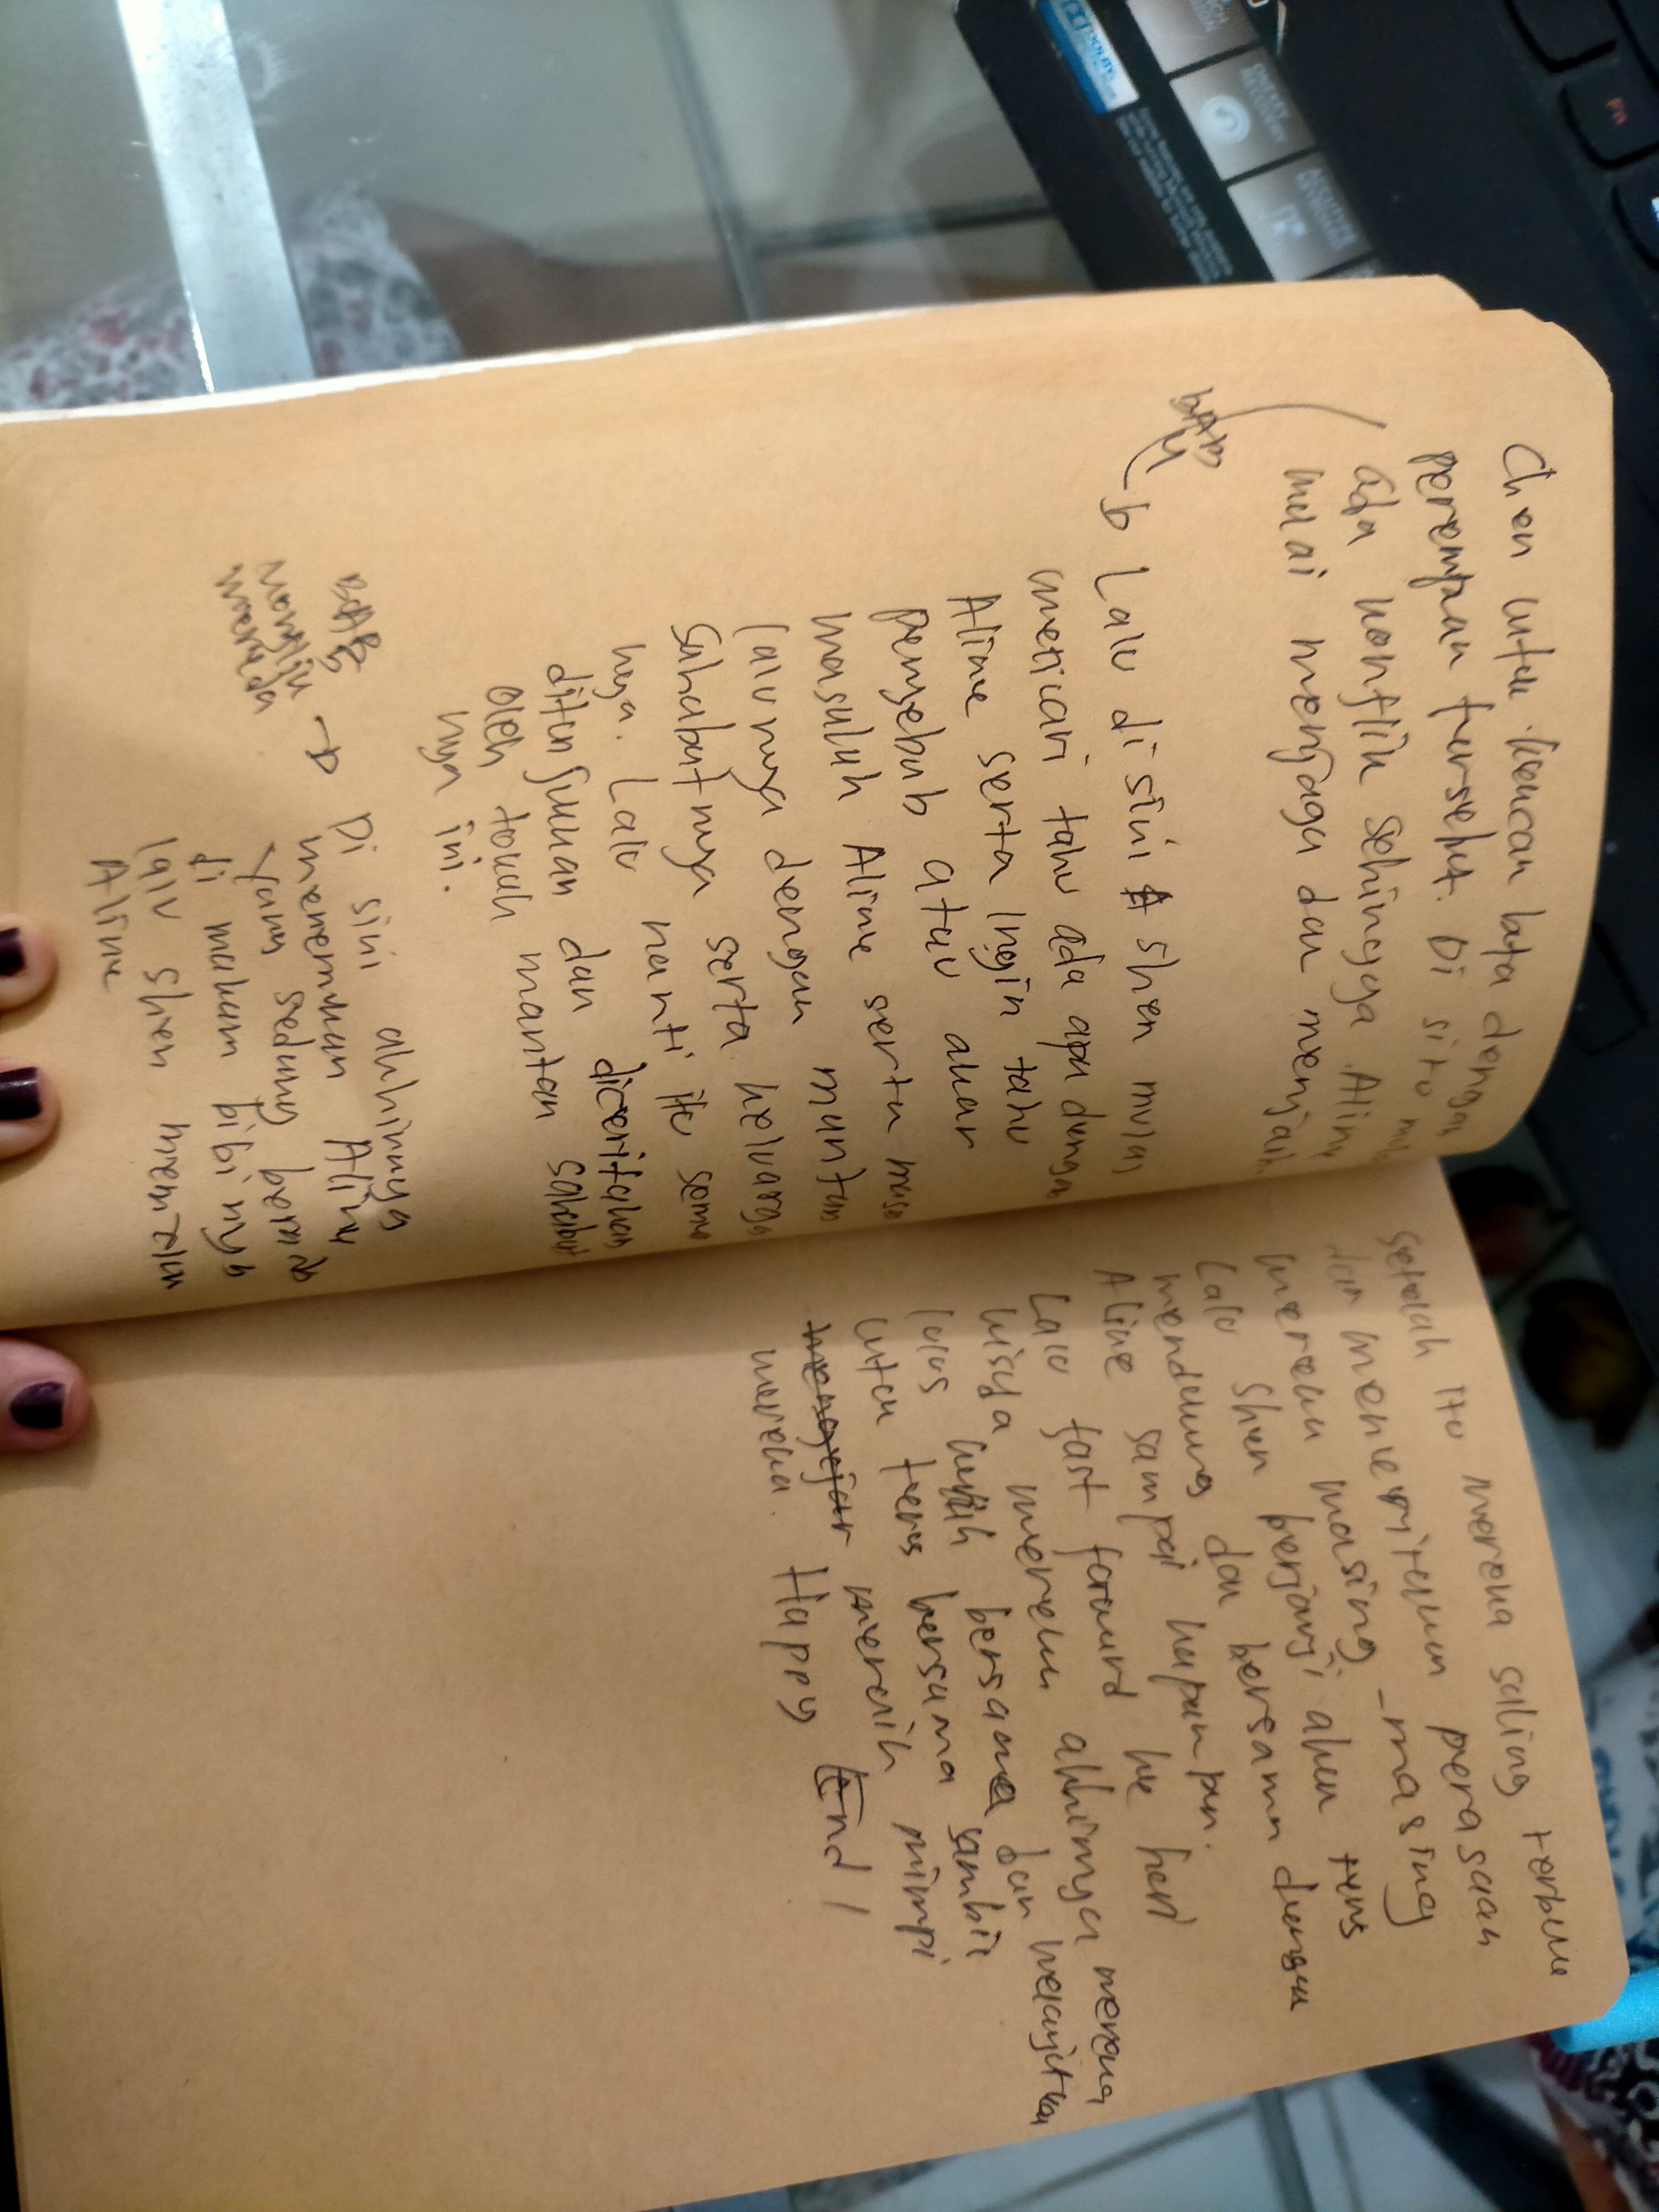 Chen untuk kencan buta dengan
perempuan tersebut. Di situ
ada konflik sehingga Aline
mulai menjaga dan menjauh
BAB
4
Lalu disini Shen mulai
mencari tahu ada apa dengan
Aline serta ingin tahu
penyebab atau akar
masalah Aline serta masa
lalunya dengan mantan
sahabatnya serta keluarga
nya. Lalu nanti itu sema
ditunjukkan dan diceritakan
oleh tokoh mantan sahabat
nya ini.
BAB
klikan
mereda
Di sini akhirnya
menemukan Aline
yang sedang berada
di makam bibinya
lalu Shen menemin
Aline
setelah itu mereka saling terbuka
dan menceritakan perasaan
mereka masing-masing
Lalu Shen berjanji akan terus
mendukung dan bersama dengan
Aline sampai kapanpun.
Lalu fast forward ke hari
wisuda mereka akhirnya mereka
lulus kuliah bersama dan melanjutkan
untuk terus bersama sambil
mengejar meraih mimpi
mereka. Happy End!
DOLBY
Fn